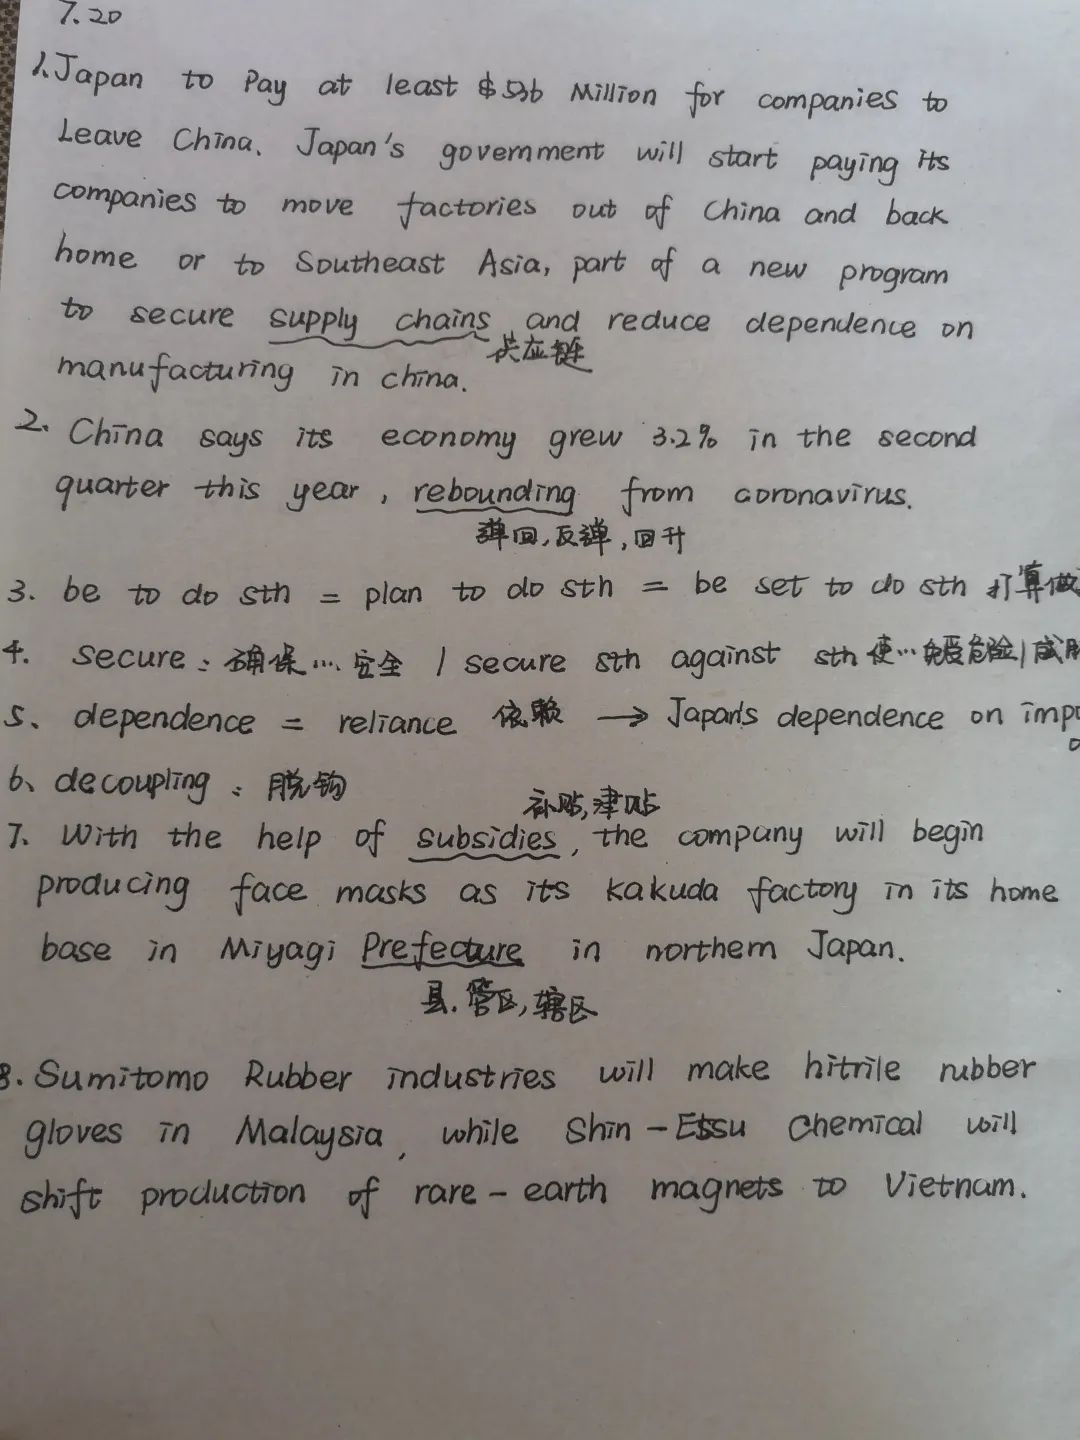 7.20
1.Japan to Pay at least $536 Million for companies to
Leave China. Japan's government will start paying its
companies to move factories out of China and back
home or to Southeast Asia, part of a new program
to secure supply chains and reduce dependence on
供应链
manufacturing in china.
2. China says its economy grew 3.2% in the second
quarter this year, rebounding from coronavirus.
弹回,反弹,回升
3. be to do sth = plan to do sth = be set to do sth 打算做
4. secure: 确保...安全 / secure sth against sth 使...免受危险/威
5、dependence = reliance 依赖 → Japan's dependence on imp
6、decoupling: 脱钩
补贴,津贴
7. With the help of subsidies, the company will begin
producing face masks as its kakuda factory in its home
base in Miyagi Prefecture in northern Japan.
县.管区,辖区
8. Sumitomo Rubber industries will make hitrile rubber
gloves in Malaysia, while Shin-Etsu Chemical will
shift production of rare-earth magnets to Vietnam.